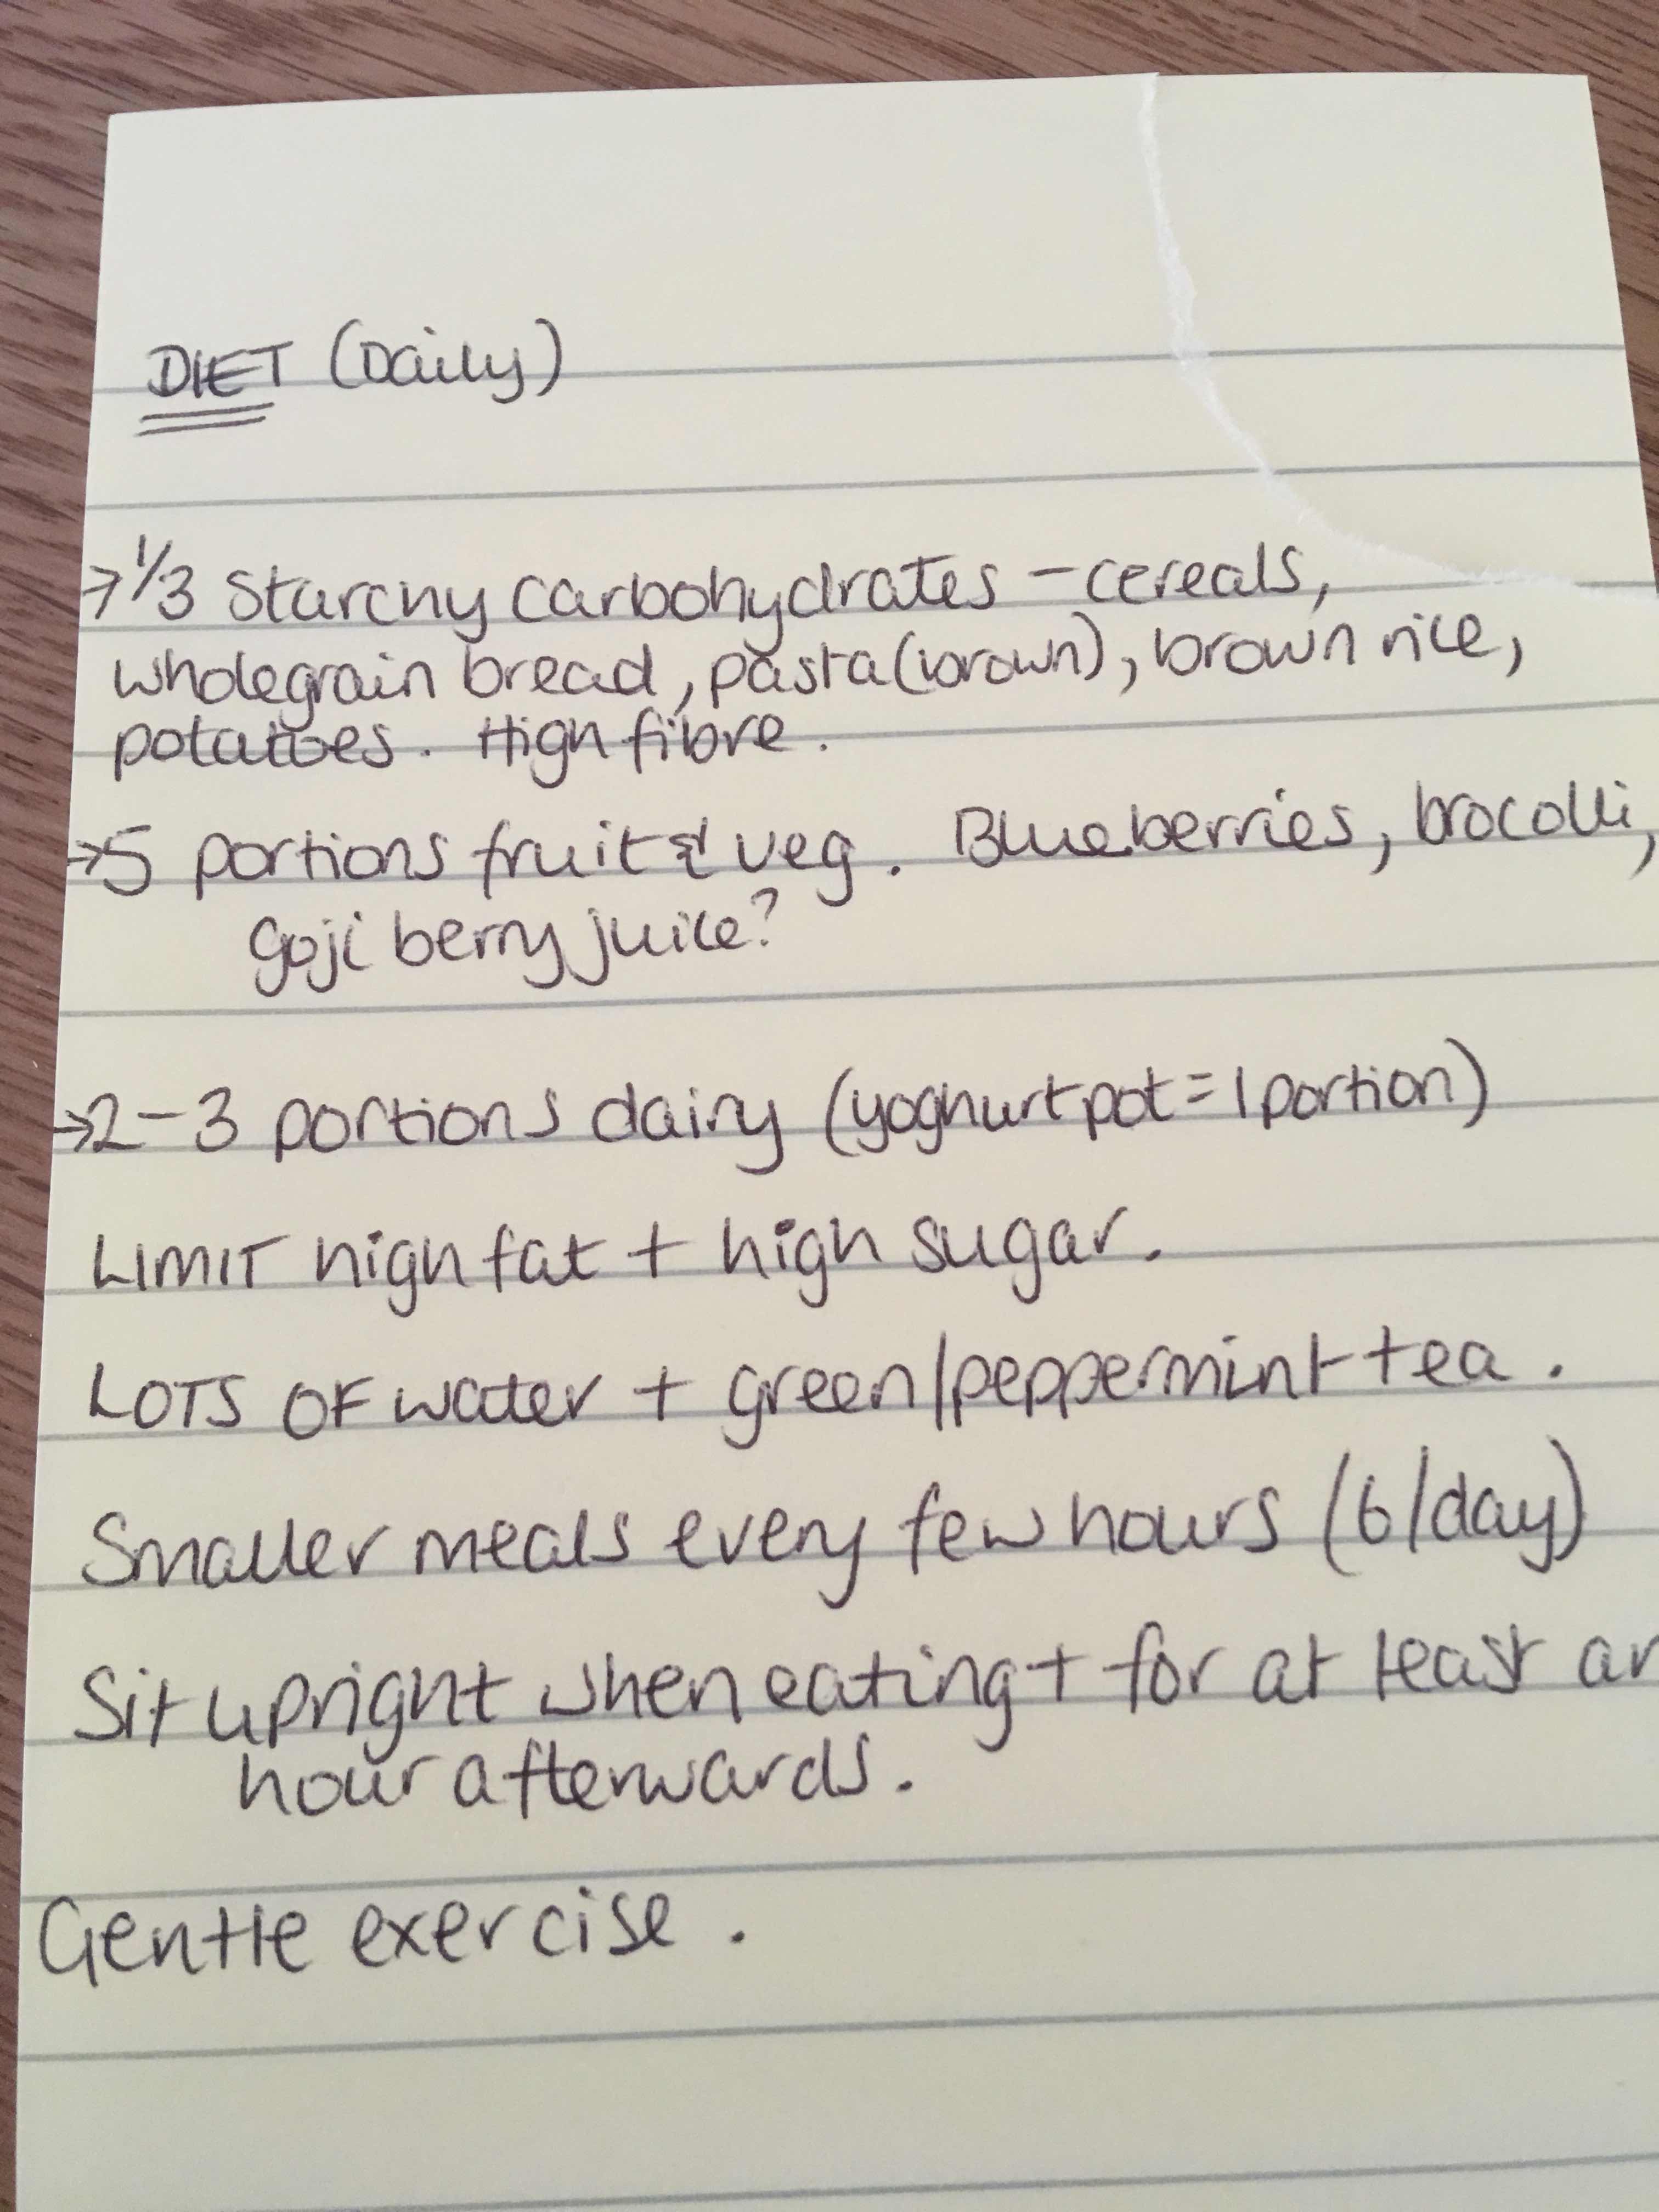 DIET (Daily)
→ 1/3 Starchy carbohydrates - cereals,
wholegrain bread, pasta (brown), brown rice,
potatoes. High fibre.
→ 5 portions fruit & veg. Blueberries, brocolli,
Goji berry juice?
→ 2-3 portions dairy (yoghurt pot = 1 portion)
LIMIT high fat + high sugar.
LOTS OF water + green/peppermint tea.
Smaller meals every few hours (6/day)
Sit upright when eating + for at least an
hour afterwards.
Gentle exercise.